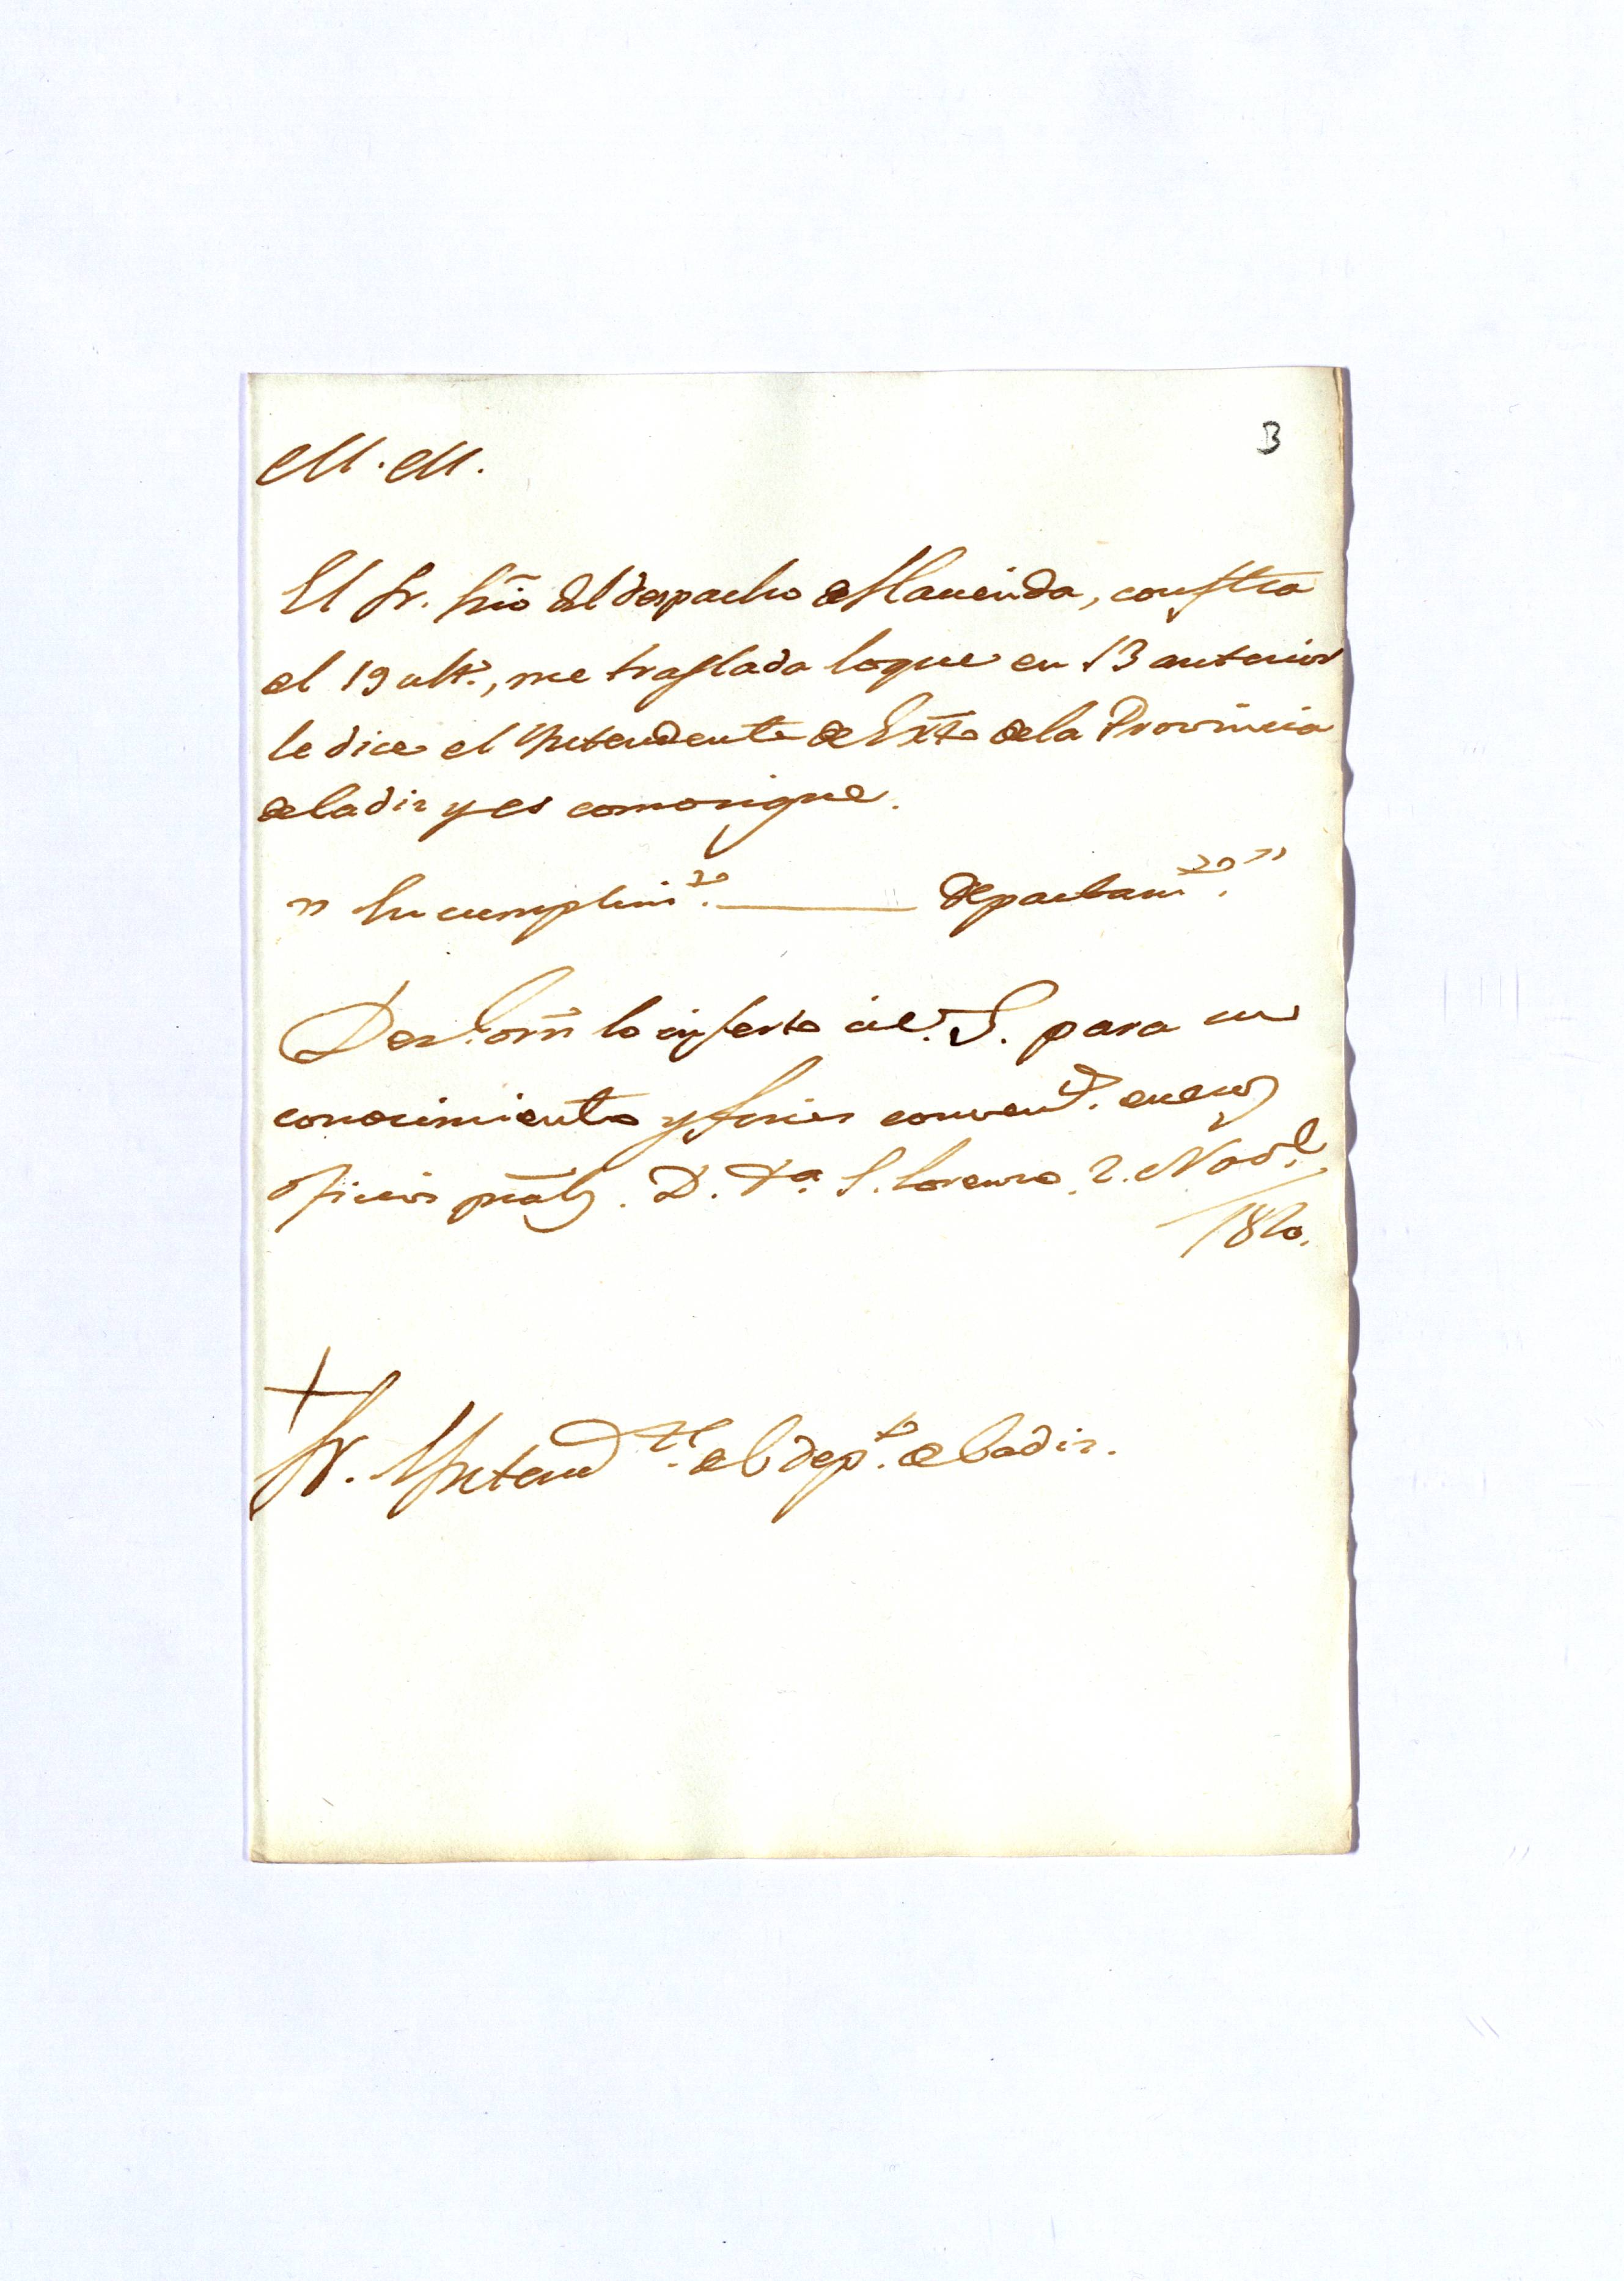 3
M. M.
El Sr. Srio del despacho de Hacienda, con ftra
el 19 ult.º, me traslada loque en 13 anterior
le dice el Yntendente de Exto dela Provincia
de Cadiz y es como sigue.
" Su cumplim.to ———— departam.to "
De Rl. orn lo inserto á V. S. para su
conocimiento y fines conven.tes en esos
oficios prales. D. Da S. Lorenzo. 2. Nov.e
1820.
Sr. Yntend.te del dep.to de Cadiz.